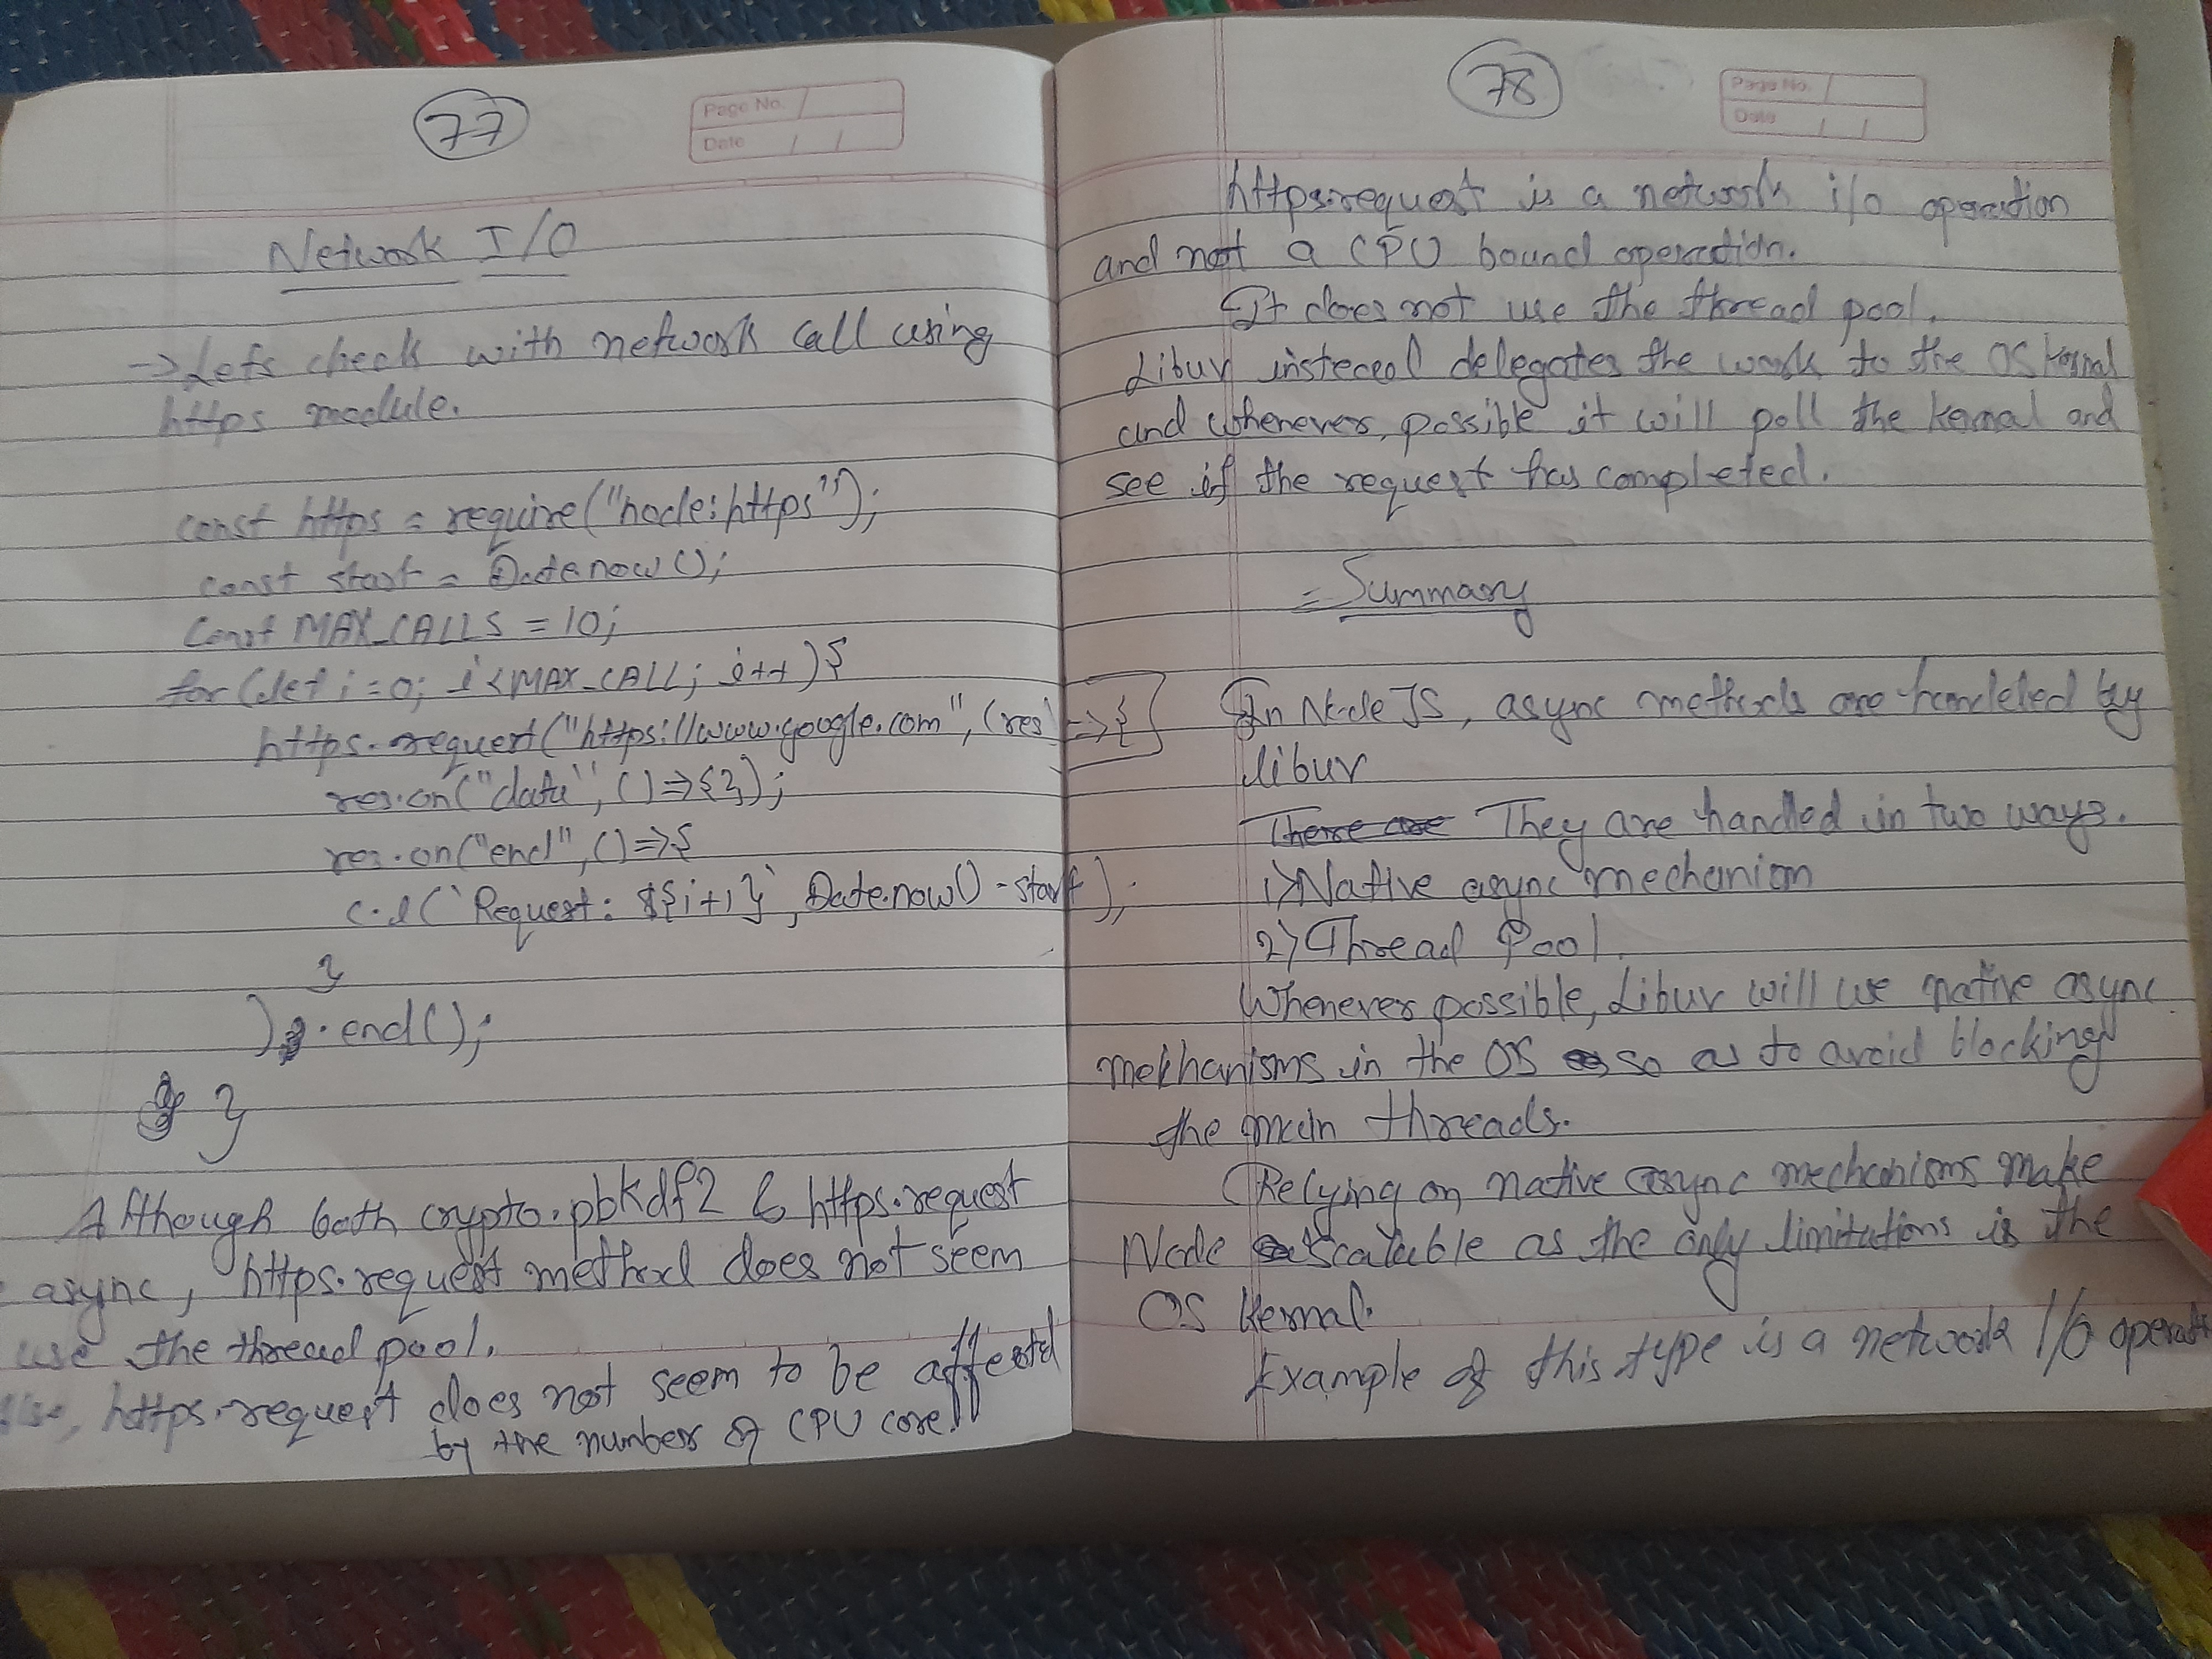 77
Page No.
Date / /
Network I/O
→ Lets check with network call using
https module.
const https = require("node:https");
const start = Date.now();
Const MAX_CALLS = 10;
for (let i = 0; i < MAX_CALL; i++) {
https.request("https://www.google.com", (res) => {
res.on("data", () => {});
res.on("end", () => {
c.l(`Request: ${i+1}`, Date.now() - start);
}
).end();
}
Although both crypto.pbkdf2 & https.request
async, https.request method does not seem
use the thread pool.
https.request does not seem to be affected
by the numbers of CPU core.
78
Page No.
Date / /
https.request is a network i/o operation
and not a CPU bound operation.
It does not use the thread pool.
Libuv instead delegates the work to the OS kernal
and whenever possible it will poll the kernal and
see if the request has completed.
= Summary
In Node JS, async methods are handeled by
libuv
There are They are handled in two ways.
1) Native async mechanism
2) Thread Pool.
Whenever possible, Libuv will use native async
mekhanisms in the OS so as to avoid blocking
the main threads.
Relying on native async mechanisms make
Node scalable as the only limitations is the
OS kernal.
Example of this type is a network I/O